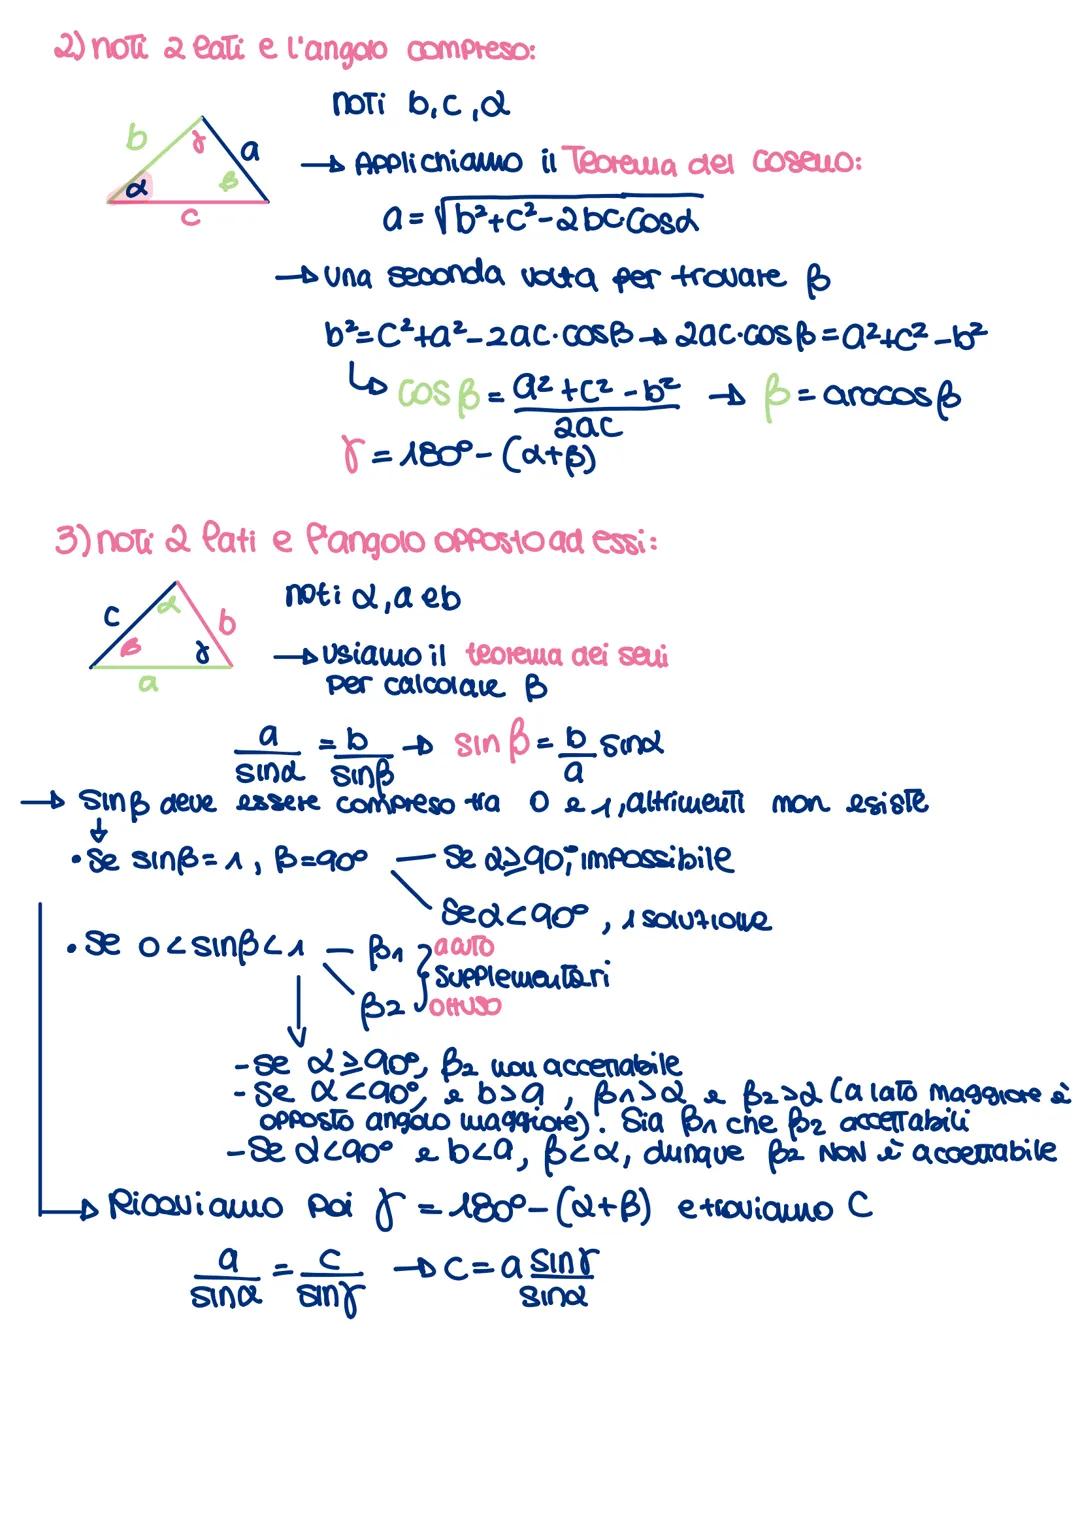 2) noti 2 lati e l'angolo compreso:
noti b, c, α
b γ a
α β
c
→ Applichiamo il Teorema del Coseno:
a = √b²+c²-2bc·cosα
→ una seconda volta per trovare β
b²=c²+a²-2ac·cosβ → 2ac·cosβ = a²+c²-b²
↳ cosβ = a²+c²-b² / 2ac → β = arccosβ
γ = 180°-(α+β)
3) noti 2 lati e l'angolo opposto ad essi:
noti α, a e b
c α b
β γ
a
→ usiamo il teorema dei seni
per calcolare β
a / sinα = b / sinβ → sinβ = b / a sinα
→ sinβ deve essere compreso tra 0 e 1, altrimenti non esiste
↓
• Se sinβ=1, β=90° — Se α≥90°, impossibile
Se α<90°, 1 soluzione
• Se 0<sinβ<1 — β₁ } acuto
supplementari
β₂ ottuso
- Se α≥90°, β₂ non accettabile
- Se α<90°, e b>a, β₁>α e β₂>α (a lato maggiore è
opposto angolo maggiore). Sia β₁ che β₂ accettabili
- Se α<90° e b<a, β<α, dunque β₂ NON è accettabile
→ Ricaviamo poi γ = 180°-(α+β) e troviamo C
a / sinα = c / sinγ → c = a sinγ / sinα